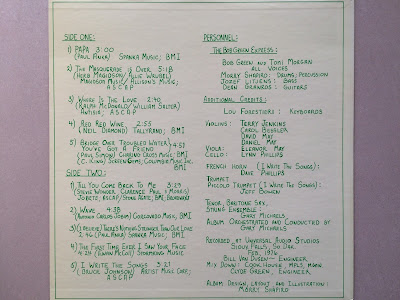 SIDE ONE:
1) PAPA 3:00
(PAUL ANKA) SPANKA MUSIC; BMI
2) THE MASQUERADE IS OVER 5:18
(HERB MAGIDSON / ALLIE WRUBEL)
MAGIDSON MUSIC / ALLISON'S MUSIC;
ASCAP
3) WHERE IS THE LOVE 2:40
(RALPH MCDONALD / WILLIAM SALTER)
ANTISIA; ASCAP
4) RED RED WINE 2:55
(NEIL DIAMOND) TALLYRAND; BMI
5) BRIDGE OVER TROUBLED WATER / 4:57
YOU'VE GOT A FRIEND
(PAUL SIMON) CHARING CROSS MUSIC; BMI
(C. KING) SCREEN GEMS, COLUMBIA MUSIC INC.
BMI
SIDE TWO:
1) TILL YOU COME BACK TO ME 3:29
(STEVIE WONDER, CLARENCE PAUL & MORRIS)
JOBETE, ASCAP / STONE AGATE, BMI, BROADHURST
2) WAVE 4:38
(ANTONIO CARLOS JOBIM) CORCOVADO MUSIC, BMI
3) (I BELIEVE) THERE'S NOTHING STRONGER THAN OUR LOVE
2:46 (PAUL ANKA) SPANKA MUSIC; BMI
4) THE FIRST TIME EVER I SAW YOUR FACE
4:24 (EWAN MCCOLL) STORMKING MUSIC
5) I WRITE THE SONGS 3:21
(BRUCE JOHNSON) ARTIST MUSIC CORP.;
ASCAP
PERSONNEL:
THE BOB GREEN EXPRESS:
BOB GREEN AND TONI MORGAN
ALL VOICES
MORRY SHAPIRO: DRUMS, PERCUSSION
JOZEF LITUIENS: BASS
DEAN GRANROS: GUITARS
ADDITIONAL CREDITS:
LOU FORESTIERI: KEYBOARDS
VIOLINS: TERRY JENKINS
CAROL BESSLER
DAVID MAY
DANIEL MAY
VIOLA: ELEANOR MAY
CELLO: LYNN PHILLIPS
FRENCH HORN (I WRITE THE SONGS):
DAVE PHILLIPS
TRUMPET
PICCOLO TRUMPET (I WRITE THE SONGS):
JEFF BOWEN
TENOR, BARITONE SAX,
STRING ENSEMBLE:
GARY MICHAELS
ALBUM ORCHESTRATED AND CONDUCTED BY
GARY MICHAELS
RECORDED AT UNIVERSAL AUDIO STUDIOS
SIOUX FALLS, SO. DAK.
FEB., 1976
BILL VAN DUSEN — ENGINEER
MIX DOWN: COOK HOUSE, MPLS., MINN.
CLYDE GREEN, ENGINEER
ALBUM DESIGN, LAYOUT AND ILLUSTRATION:
MORRY SHAPIRO